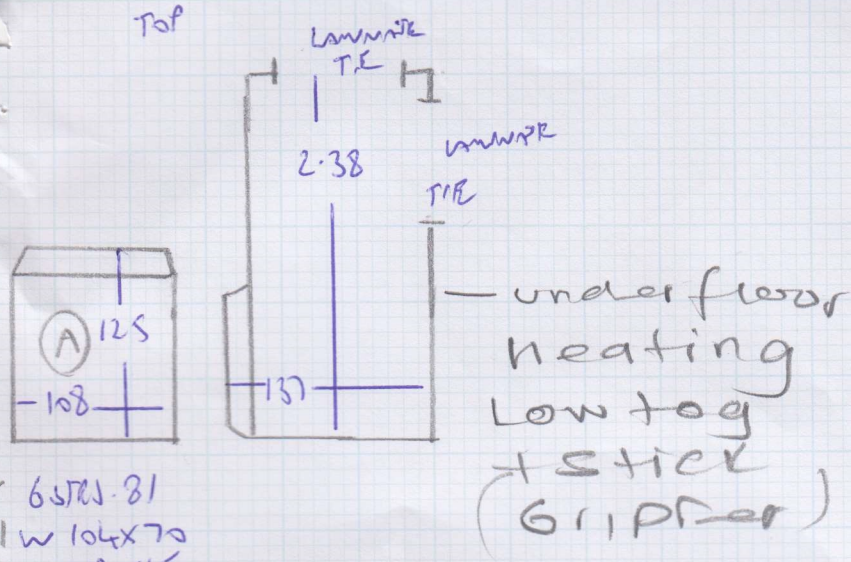 TOP
LAMINATE
T.E
2.38
LAMINATE
T/E
A
125
108
137
underfloor
heating
Low tog
+ stick
(Gripper)
6 STRS. 81
1 W 104x70